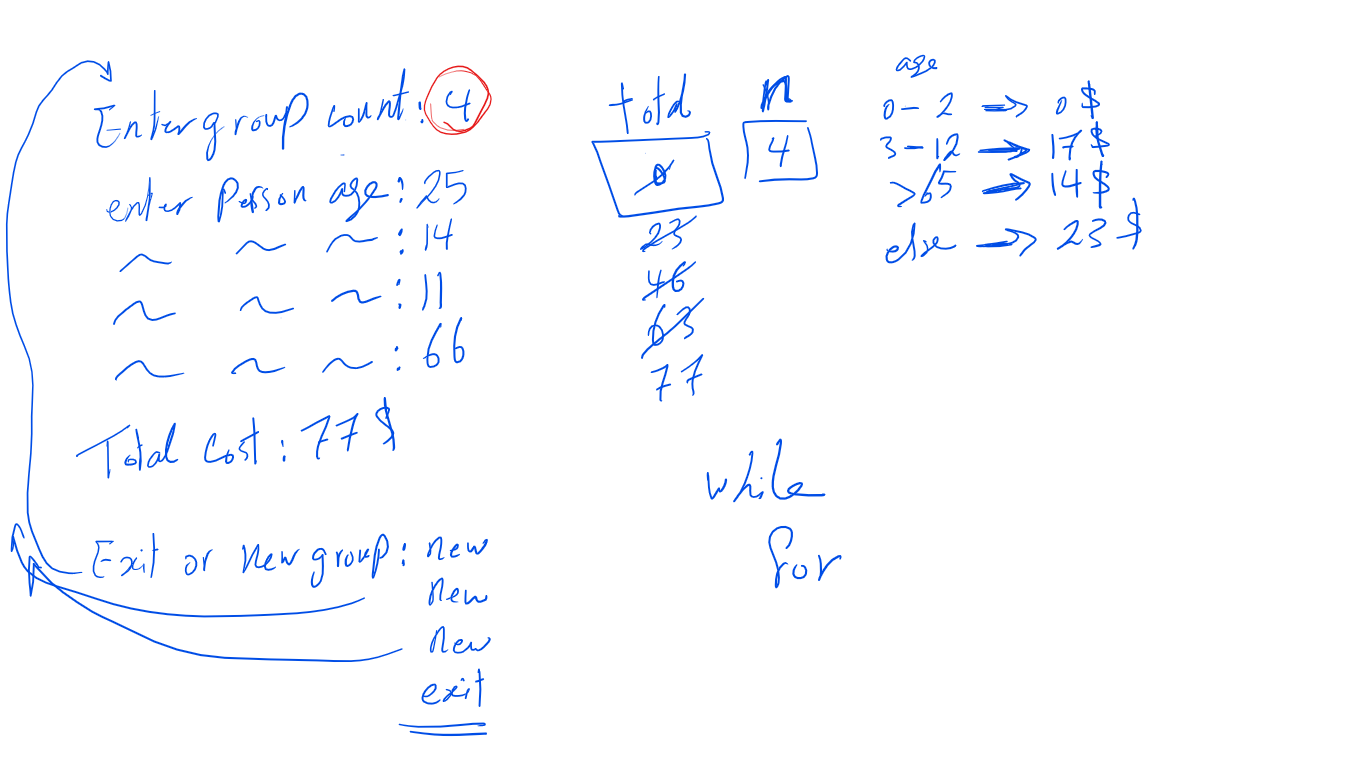 Enter group count: 4
enter Person age: 25
~ ~ ~ : 14
~ ~ ~ : 11
~ ~ ~ : 66
Total Cost: 77$
Exit or New group: new
new
new
exit
total
0
23
46
63
77
n
4
age
0 - 2 => 0$
3 - 12 => 17$
>65 => 14$
else => 23$
while
for